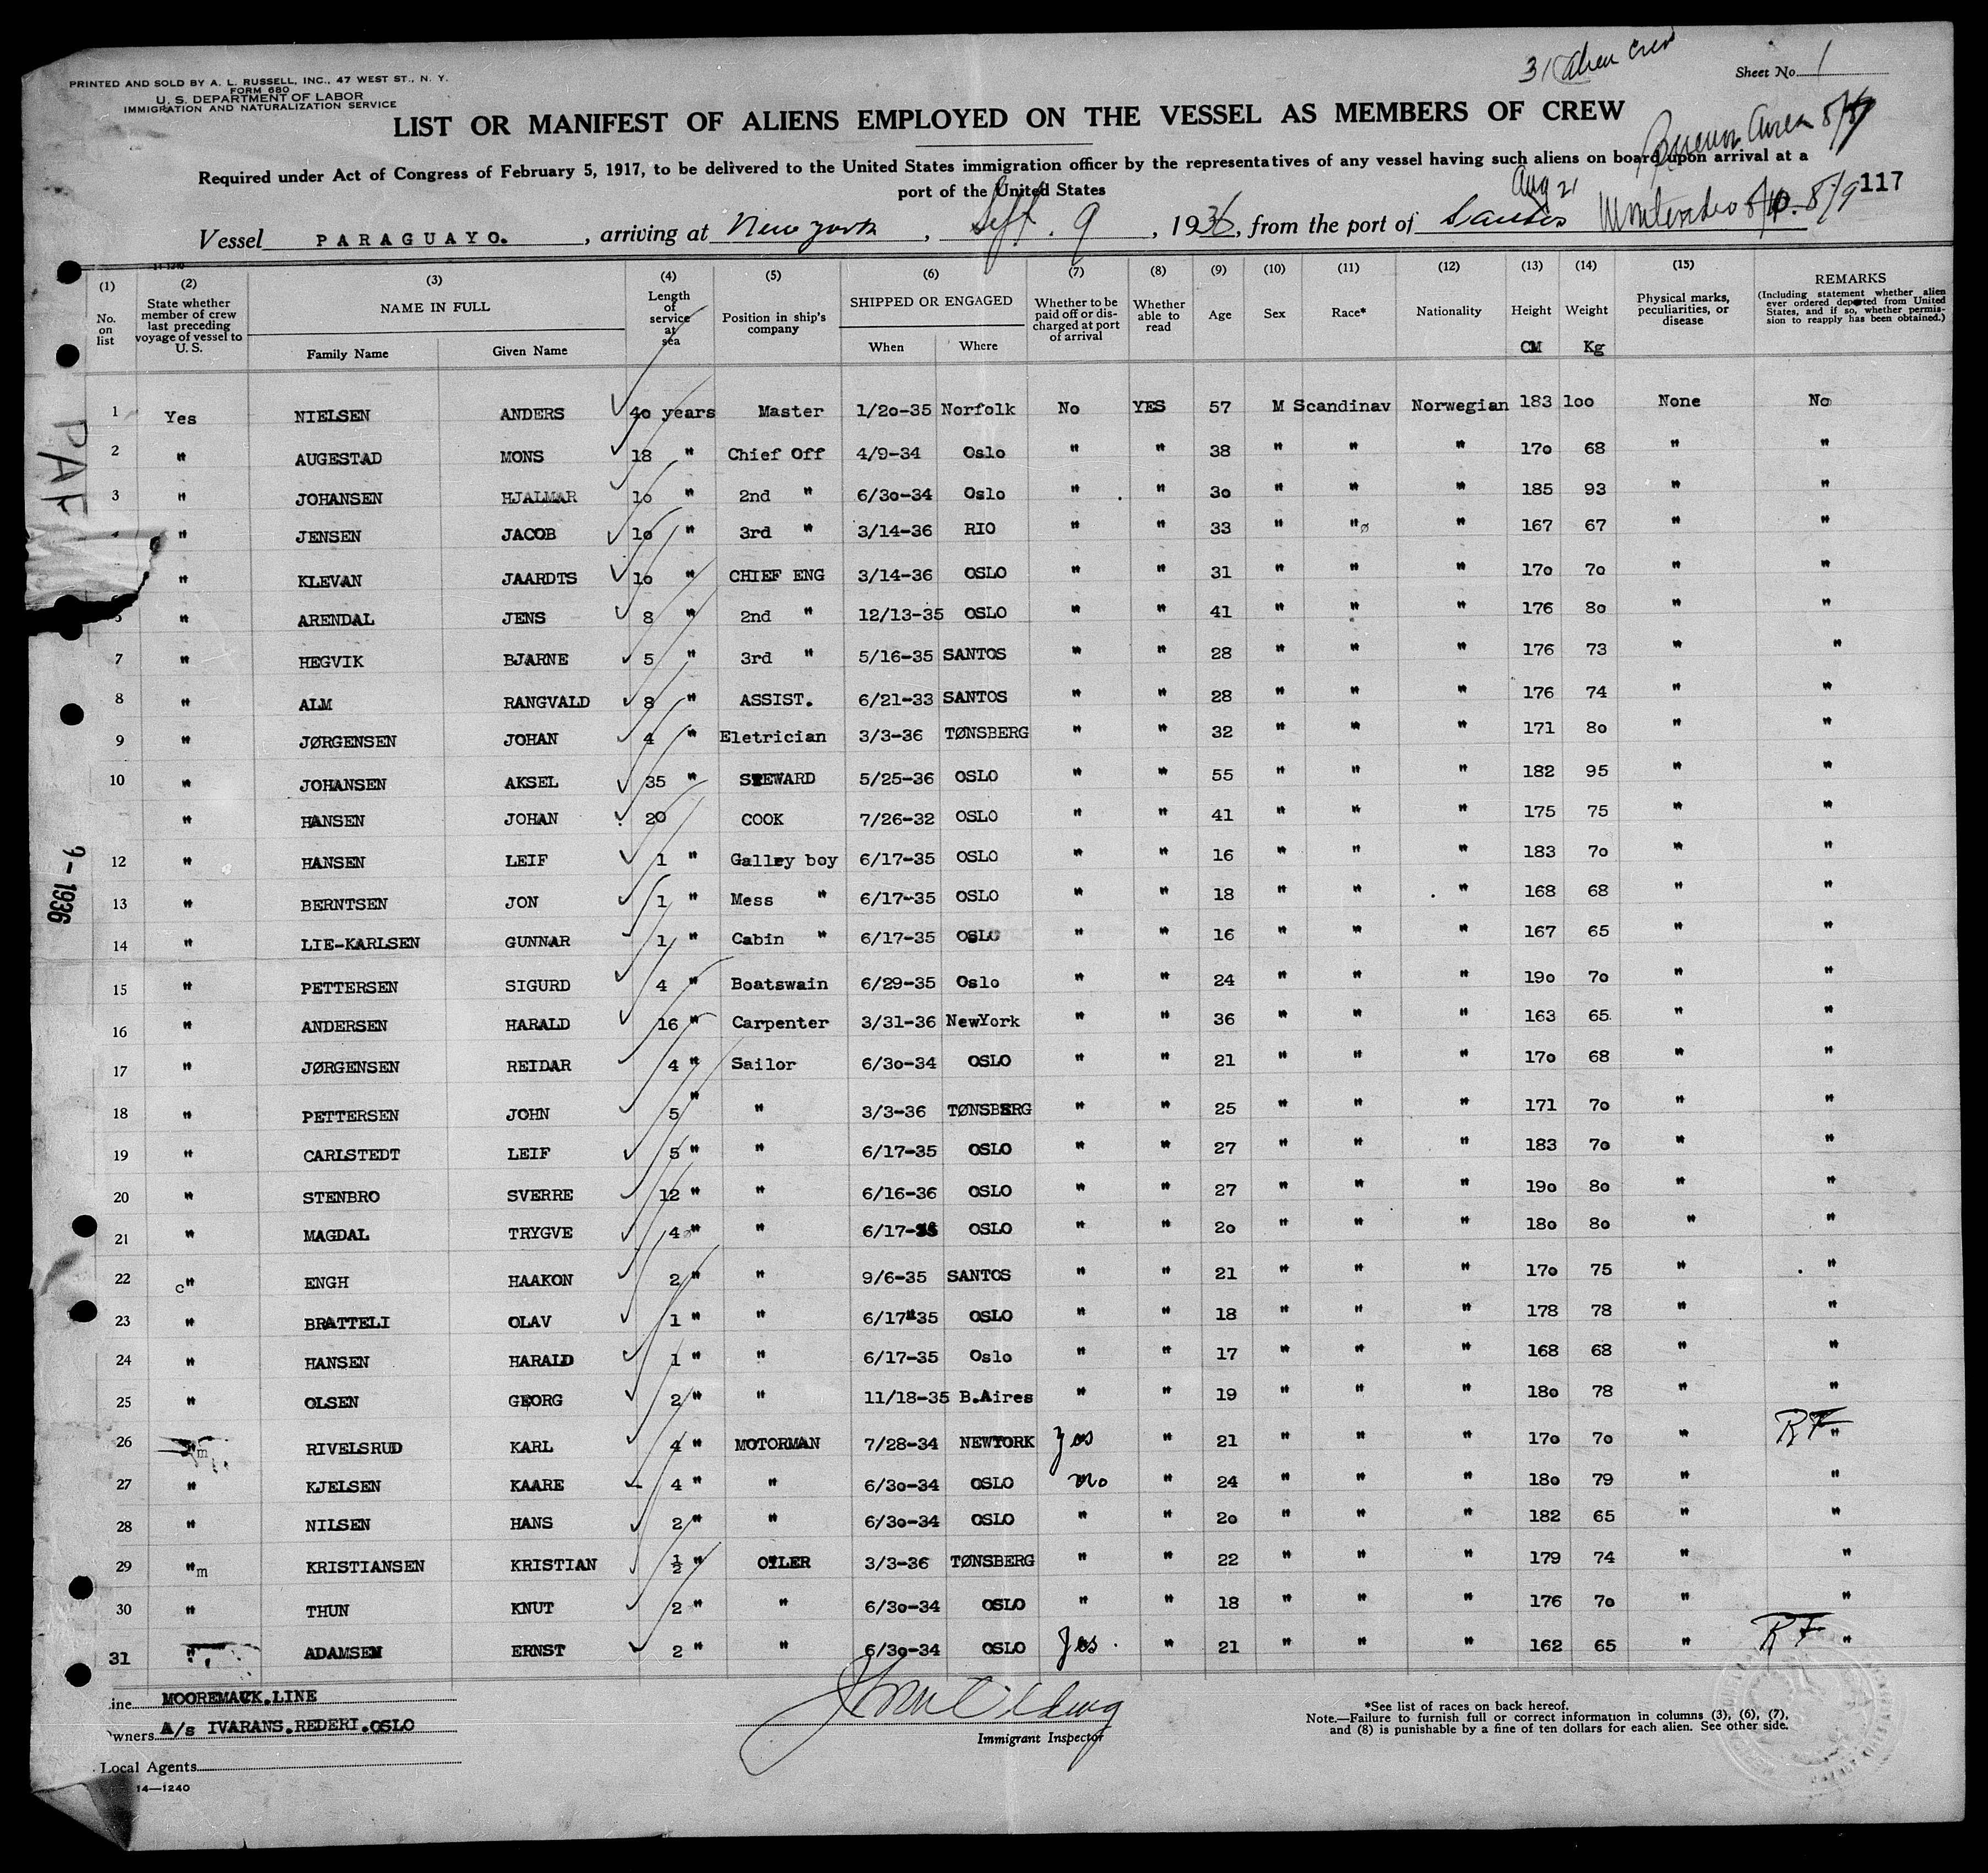 PRINTED AND SOLD BY A. L. RUSSELL, INC., 47 WEST ST., N. Y.
FORM 680
U. S. DEPARTMENT OF LABOR
IMMIGRATION AND NATURALIZATION SERVICE
31 Alien Crew
Sheet No. 1
LIST OR MANIFEST OF ALIENS EMPLOYED ON THE VESSEL AS MEMBERS OF CREW
Buenos Aires
Required under Act of Congress of February 5, 1917, to be delivered to the United States immigration officer by the representatives of any vessel having such aliens on board upon arrival at a
port of the United States
Aug 21
117
Vessel PARAGUAYO. , arriving at New York , Sept. 9 , 1936, from the port of Santos Montevideo 8/9
14-1240
(1) (2) (3) (4) (5) (6) (7) (8) (9) (10) (11) (12) (13) (14) (15)
No. on list State whether member of crew last preceding voyage of vessel to U. S. NAME IN FULL Family Name Given Name Length of service at sea Position in ship's company SHIPPED OR ENGAGED When Where Whether to be paid off or discharged at port of arrival Whether able to read Age Sex Race* Nationality Height CM Weight Kg Physical marks, peculiarities, or disease REMARKS (Including statement whether alien ever ordered deported from United States, and if so, whether permission to reapply has been obtained.)
1 Yes NIELSEN ANDERS 40 years Master 1/20-35 Norfolk No YES 57 M Scandinav Norwegian 183 100 None No
2 " AUGESTAD MONS 18 " Chief Off 4/9-34 Oslo " " 38 " " " 170 68 " "
3 " JOHANSEN HJALMAR 10 " 2nd " 6/30-34 Oslo " " 30 " " " 185 93 " "
" JENSEN JACOB 10 " 3rd " 3/14-36 RIO " " 33 " " " 167 67 " "
" KLEVAN JAARDTS 10 " CHIEF ENG 3/14-36 OSLO " " 31 " " " 170 70 " "
" ARENDAL JENS 8 " 2nd " 12/13-35 OSLO " " 41 " " " 176 80 " "
7 " HEGVIK BJARNE 5 " 3rd " 5/16-35 SANTOS " " 28 " " " 176 73 " "
8 " ALM RANGVALD 8 " ASSIST. 6/21-33 SANTOS " " 28 " " " 176 74 " "
9 " JØRGENSEN JOHAN 4 " Eletrician 3/3-36 TØNSBERG " " 32 " " " 171 80 " "
10 " JOHANSEN AKSEL 35 " STEWARD 5/25-36 OSLO " " 55 " " " 182 95 " "
" HANSEN JOHAN 20 COOK 7/26-32 OSLO " " 41 " " " 175 75 " "
12 " HANSEN LEIF 1 " Galley boy 6/17-35 OSLO " " 16 " " " 183 70 " "
13 " BERNTSEN JON 1 " Mess " 6/17-35 OSLO " " 18 " " " 168 68 " "
14 " LIE-KARLSEN GUNNAR 1 " Cabin " 6/17-35 OSLO " " 16 " " " 167 65 " "
15 " PETTERSEN SIGURD 4 " Boatswain 6/29-35 Oslo " " 24 " " " 190 70 " "
16 " ANDERSEN HARALD 16 " Carpenter 3/31-36 NewYork " " 36 " " " 163 65 " "
17 " JØRGENSEN REIDAR 4 " Sailor 6/30-34 OSLO " " 21 " " " 170 68 " "
18 " PETTERSEN JOHN 5 " " 3/3-36 TØNSBERG " " 25 " " " 171 70 " "
19 " CARLSTEDT LEIF 5 " " 6/17-35 OSLO " " 27 " " " 183 70 " "
20 " STENBRO SVERRE 12 " " 6/16-36 OSLO " " 27 " " " 190 80 " "
21 " MAGDAL TRYGVE 4 " " 6/17- OSLO " " 20 " " " 180 80 " "
22 c" ENGH HAAKON 2 " " 9/6-35 SANTOS " " 21 " " " 170 75 " "
23 " BRATTELI OLAV 1 " " 6/17"35 OSLO " " 18 " " " 178 78 " "
24 " HANSEN HARALD 1 " " 6/17-35 Oslo " " 17 " " " 168 68 " "
25 " OLSEN GEORG 2 " " 11/18-35 B.Aires " " 19 " " " 180 78 " "
26 "m RIVELSRUD KARL 4 " MOTORMAN 7/28-34 NEWYORK yes " 21 " " " 170 70 " RF "
27 " KJELSEN KAARE 4 " " 6/30-34 OSLO no " 24 " " " 180 79 " "
28 " NILSEN HANS 2 " " 6/30-34 OSLO " " 20 " " " 182 65 " "
29 "m KRISTIANSEN KRISTIAN ½ " OILER 3/3-36 TØNSBERG " " 22 " " " 179 74 " "
30 " THUN KNUT 2 " " 6/30-34 OSLO " " 18 " " " 176 70 " "
31 " ADAMSEN ERNST 2 " " 6/30-34 OSLO yes " 21 " " " 162 65 " RF "
9-1936
ine MOOREMACK.LINE
wners A/s IVARANS.REDERI.OSLO
Local Agents
14—1240
Immigrant Inspector
*See list of races on back hereof.
Note.—Failure to furnish full or correct information in columns (3), (6), (7),
and (8) is punishable by a fine of ten dollars for each alien. See other side.